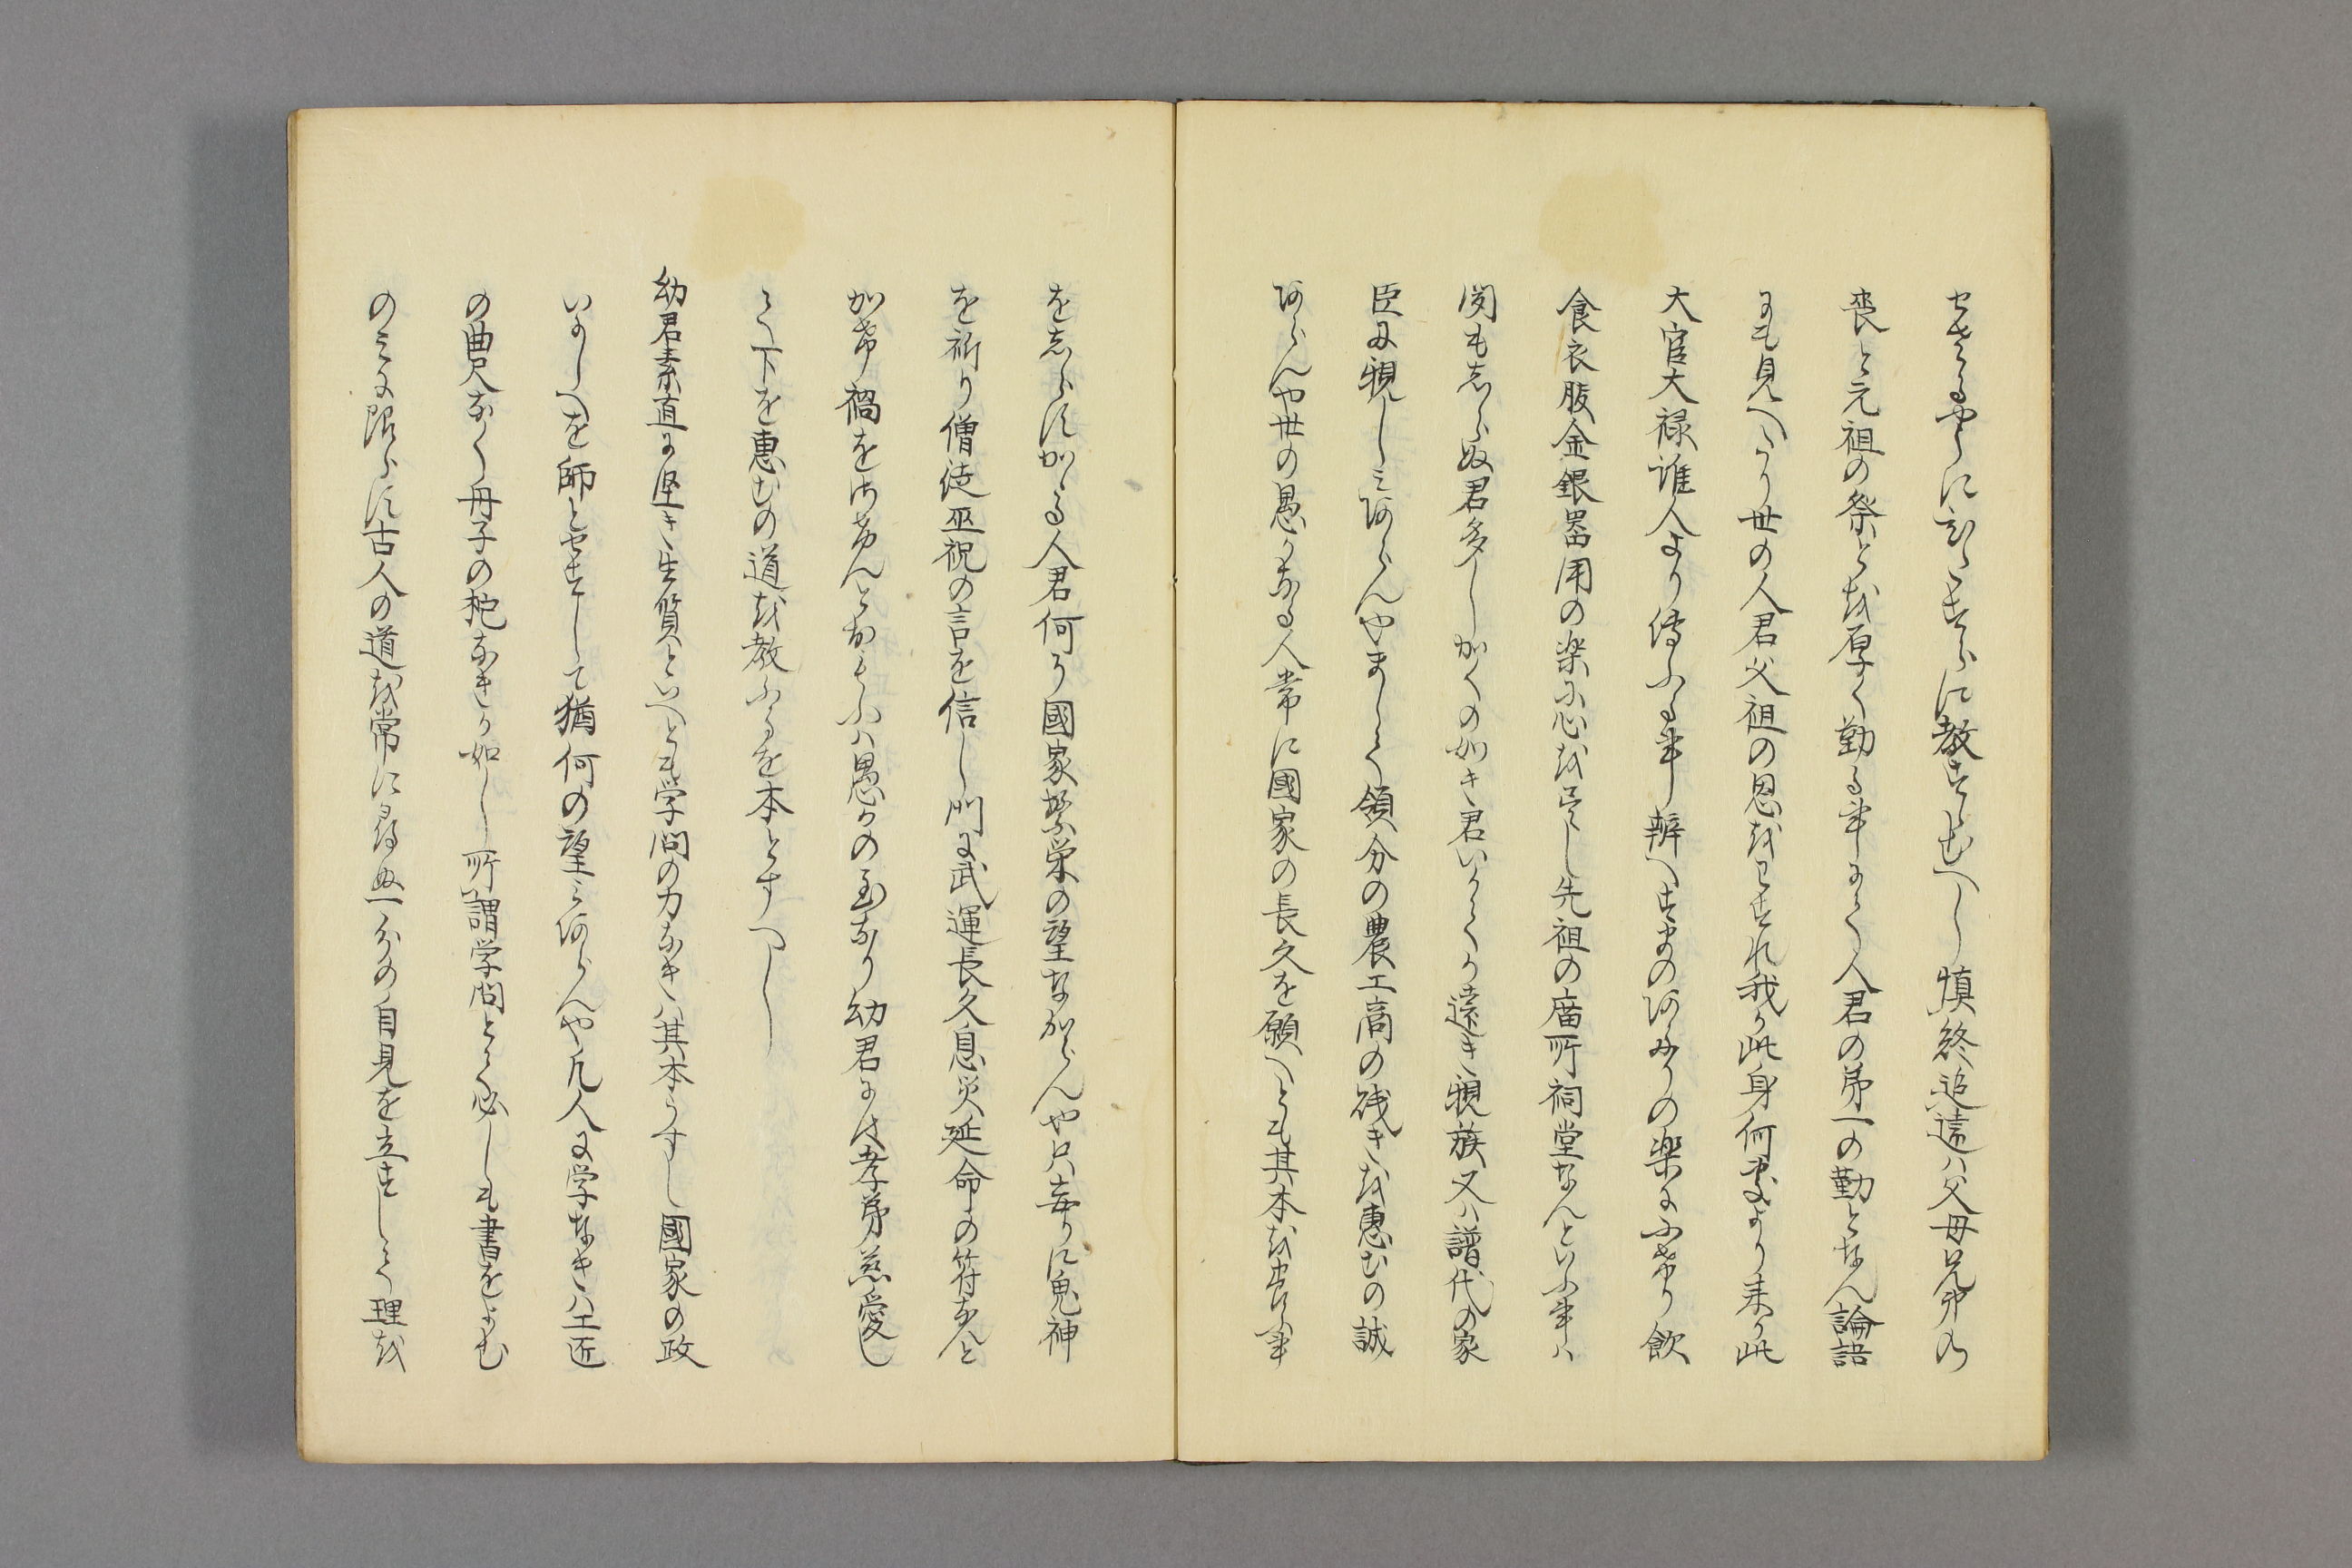 せさるやうにひたすらに教さむへし慎終追遠ハ父母兄弟の
喪と元祖の祭とを厚く勤る事にて人君の第一の勤となん論語
にも見へたり世の人君父祖の恩をわすれ我か此身何処より来り此
大官大禄誰人より傳ふる事辨へすまのあたりの楽にふけり飲
食衣服金銀器用の楽に心を尽し先祖の廟所祠堂なんといふ事ハ
聞も志らぬ君多しかくの如き君いかてか遠き親族又ハ譜代の家
臣に親しミあらんやまして領分の農工商の賤きを恵むの誠
あらんや世の愚かなる人常に國家の長久を願へとも其本を害ふ事
を志らすかゝる人君何そ國家繁栄の望なからんや只妄りに鬼神
を祈り僧徒巫祝の言を信し門に武運長久息災延命の符なんと
かけ禍をはらはんとおもふハ愚かの至なり幼君にハ孝弟慈愛し
て下を恵むの道を教ふるを本とすへし
幼君素直に堅き生質といへとも学問の力なきハ其本うすし國家の政
いにしへを師とせすして猶何の望ミあらんや凡人に学なきハ工匠
の曲尺なく舟子の柁なきか如し所謂学問とて必しも書をよむ
のミに限らす古人の道を常に尋ぬ一分の自見を立すして理を